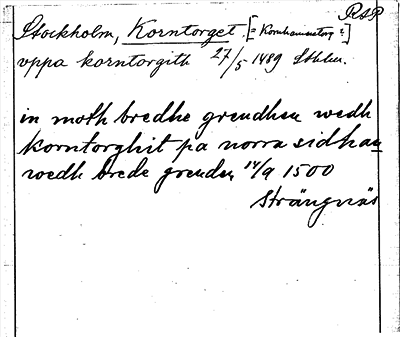 RAP
Stockholm, Korntorget [= Kornhamnstorg?]
vppa korntorgith 27/5 1489 Sthlm.
in moth bredhe grendhen wedh
korntorghit pa norra sidhan
wedh brede grenden 14/9 1500
Strängnäs